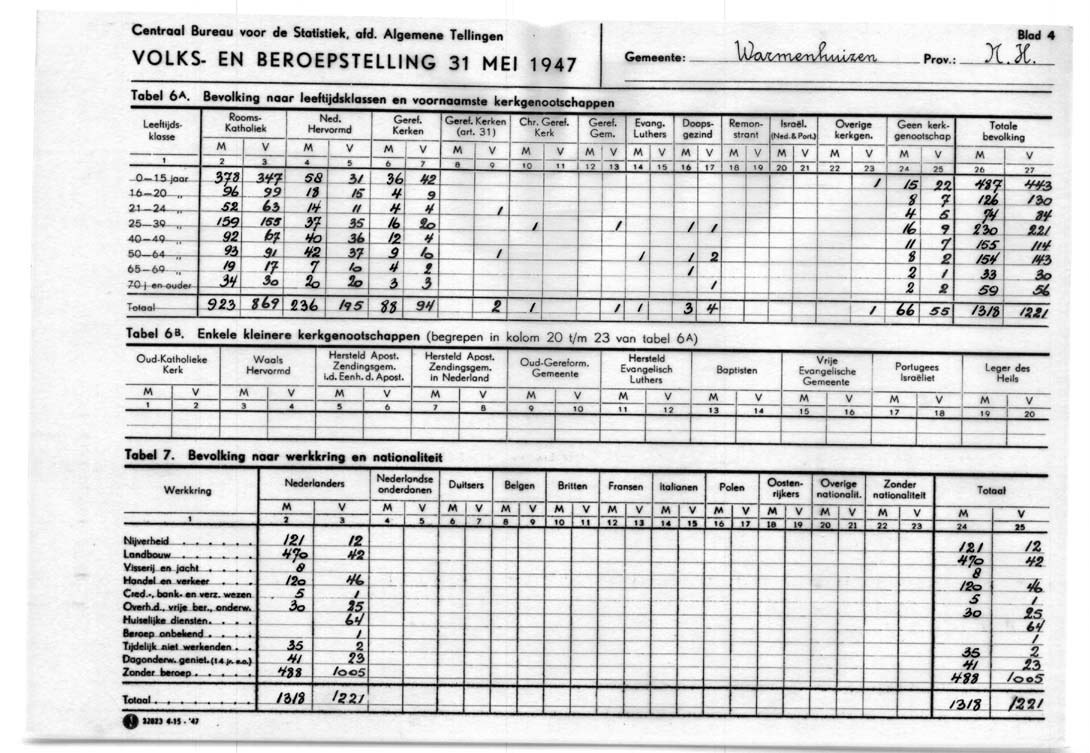 Centraal Bureau voor de Statistiek, afd. Algemene Tellingen
Blad 4
VOLKS- EN BEROEPSTELLING 31 MEI 1947
Gemeente: Warmenhuizen Prov.: N. H.
Tabel 6A. Bevolking naar leeftijdsklassen en voornaamste kerkgenootschappen
Leeftijds-klasse Rooms-Katholiek Ned. Hervormd Geref. Kerken Geref. Kerken (art. 31) Chr. Geref. Kerk Geref. Gem. Evang. Luthers Doops-gezind Remon-strant Israël. (Ned. & Port.) Overige kerkgen. Geen kerk-genootschap Totale bevolking
M V M V M V M V M V M V M V M V M V M V M V M V M V
1 2 3 4 5 6 7 8 9 10 11 12 13 14 15 16 17 18 19 20 21 22 23 24 25 26 27
0-15 jaar 378 347 58 31 36 42 1 15 22 487 443
16-20 „ 96 99 18 15 4 9 8 7 126 130
21-24 „ 52 63 14 11 4 4 1 4 5 74 84
25-39 „ 159 155 37 35 16 20 1 1 1 1 16 9 230 221
40-49 „ 92 67 40 36 12 4 11 7 155 114
50-64 „ 93 91 42 37 9 10 1 1 1 2 8 2 154 143
65-69 „ 19 17 7 10 4 2 1 2 1 33 30
70 j en ouder 34 30 20 20 3 3 1 2 2 59 56
Totaal 923 869 236 195 88 94 2 1 1 1 3 4 1 66 55 1318 1221
Tabel 6B. Enkele kleinere kerkgenootschappen (begrepen in kolom 20 t/m 23 van tabel 6A)
Oud-Katholieke Kerk Waals Hervormd Hersteld Apost. Zendingsgem. i.d. Eenh. d. Apost. Hersteld Apost. Zendingsgem. in Nederland Oud-Gereform. Gemeente Hersteld Evangelisch Luthers Baptisten Vrije Evangelische Gemeente Portugees Israëliet Leger des Heils
M V M V M V M V M V M V M V M V M V M V
1 2 3 4 5 6 7 8 9 10 11 12 13 14 15 16 17 18 19 20
Tabel 7. Bevolking naar werkkring en nationaliteit
Werkkring Nederlanders Nederlandse onderdanen Duitsers Belgen Britten Fransen Italianen Polen Oosten-rijkers Overige nationalit. Zonder nationaliteit Totaal
M V M V M V M V M V M V M V M V M V M V M V M V
1 2 3 4 5 6 7 8 9 10 11 12 13 14 15 16 17 18 19 20 21 22 23 24 25
Nijverheid 121 12 121 12
Landbouw 470 42 470 42
Visserij en jacht 8 8
Handel en verkeer 120 46 120 46
Cred.-, bank- en verz. wezen 5 1 5 1
Overh.d., vrije ber., onderw. 30 25 30 25
Huiselijke diensten 64 64
Beroep onbekend 1 1
Tijdelijk niet werkenden 35 2 35 2
Dagonderw. geniet. (14 jr. e.o.) 41 23 41 23
Zonder beroep 488 1005 488 1005
Totaal 1318 1221 1318 1221
32823 4-15 - '47